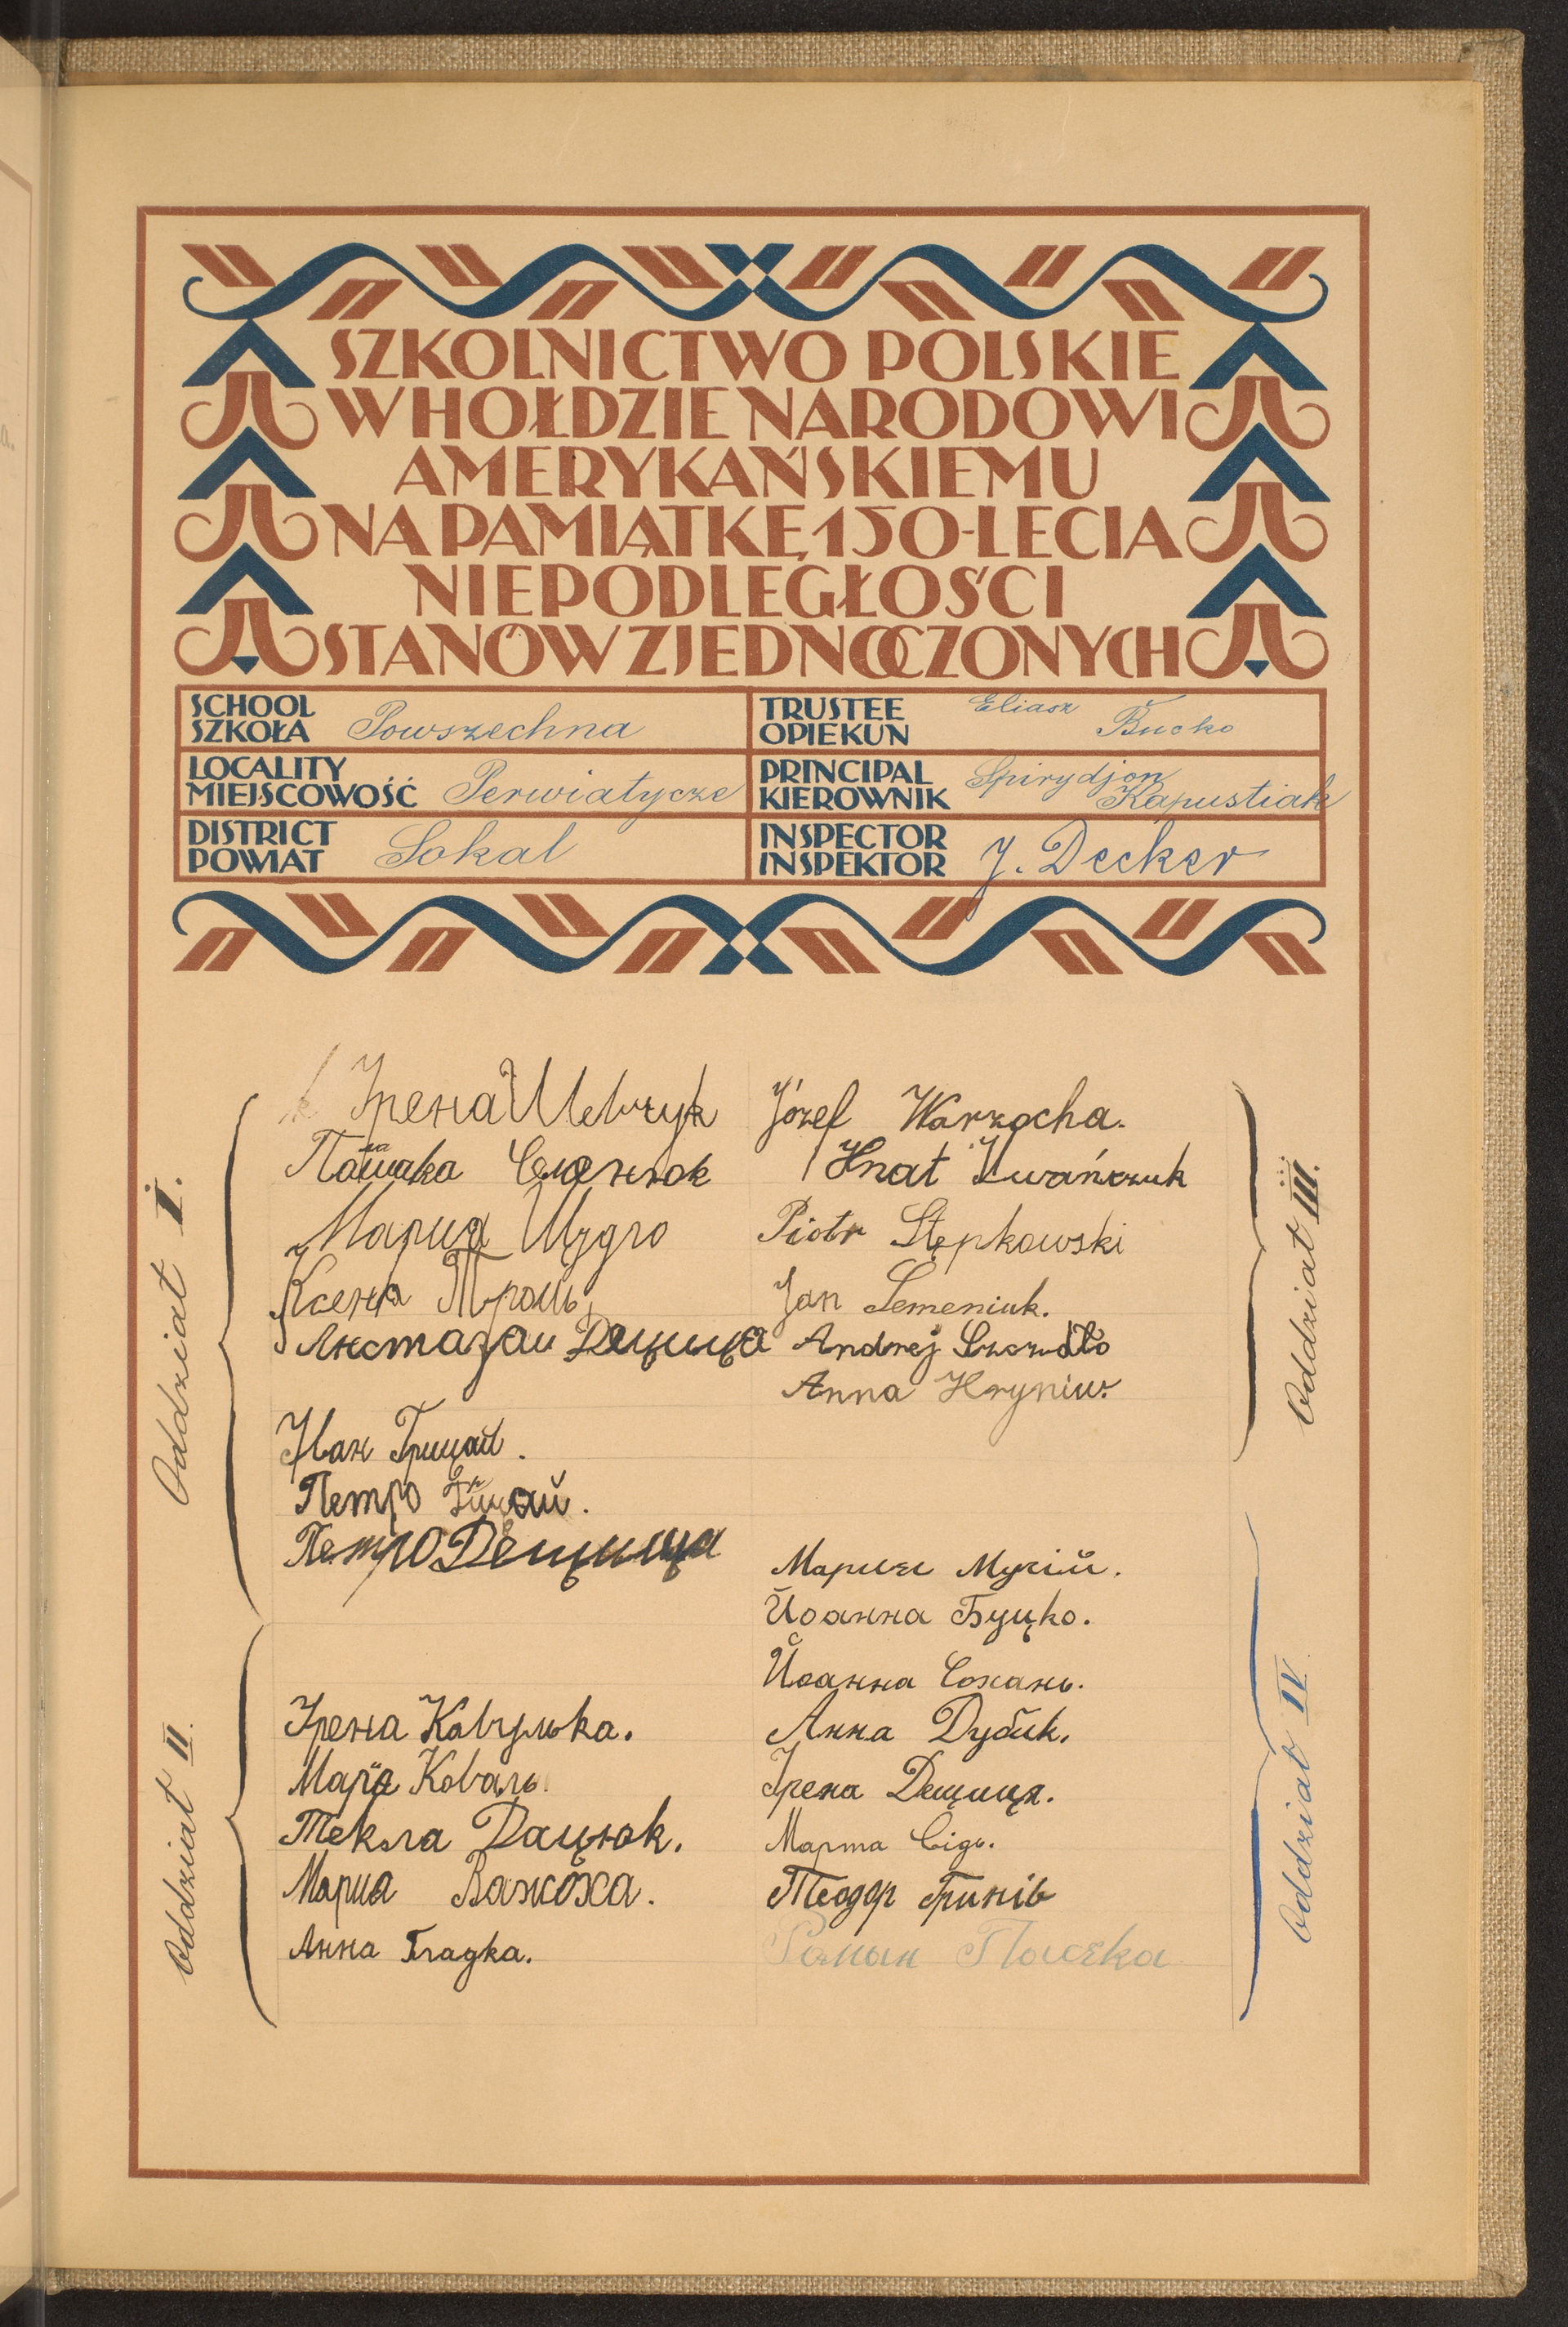 SZKOLNICTWO POLSKIE
W HOŁDZIE NARODOWI
AMERYKAŃSKIEMU
NA PAMIĄTKĘ 150-LECIA
NIEPODLEGŁOŚCI
STANÓW ZJEDNOCZONYCH
SCHOOL
SZKOŁA Powszechna
TRUSTEE
OPIEKUN Eliasz Bucko
LOCALITY
MIEJSCOWOŚĆ Perwiatycze
PRINCIPAL
KIEROWNIK Spirydjon Kapustiak
DISTRICT
POWIAT Sokal
INSPECTOR
INSPEKTOR J. Decker
Oddział I.
Ірена Шевчук
Мариа Шудло
Ксена
Дещица
Іван Грицай.
Петро
Петро Дещица
Oddział II.
Ірена Ковулька.
Маріа Коваль.
Текла Дацюк.
Мариа Важоха.
Анна Гладка.
Oddział III.
Józef Warzocha.
Hnat Iwańczuk
Piotr Stępkowski
Jan Semeniuk.
Andrej Szczudło
Anna Hryniw.
Oddział IV.
Мария Мукій.
Йоанна Буцко.
Йоанна Сохань.
Анна Дубик.
Ірена Дещиця.
Марта Сідь.
Теодор Гринів
Роман Пасєка